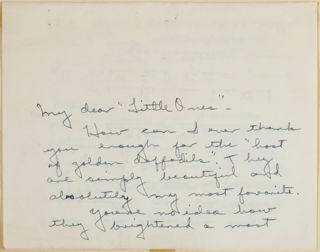 My dear "Little Ones" -
How can I ever thank
you enough for the "host
of golden daffodils". They
are simply beautiful and
absolutely my most favorite.
You've no idea how
they brightened a most